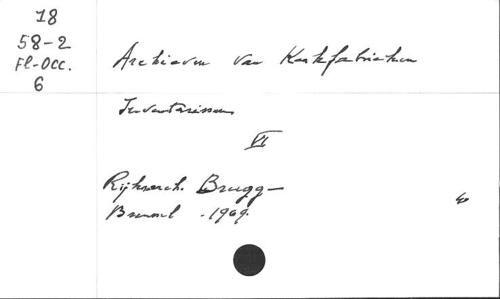 18
58-2
Fl-Occ.
6
Archieven van Kerkfabrieken
Inventarissen
VI
Rijksarch. Brugge
Brussel - 1969.